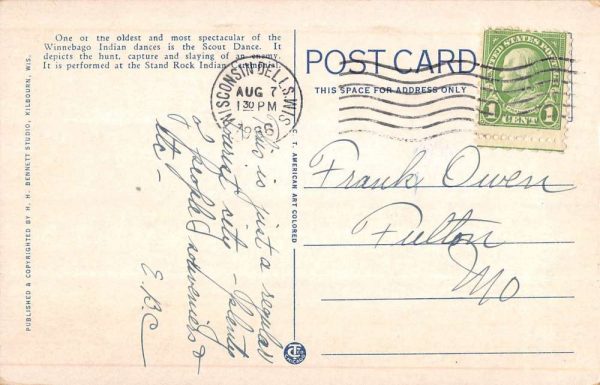 One or the oldest and most spectacular of the
Winnebago Indian dances is the Scout Dance. It
depicts the hunt, capture and slaying of an enemy.
It is performed at the Stand Rock Indian Ceremonial.
POST CARD
THIS SPACE FOR ADDRESS ONLY
UNITED STATES POSTAGE
1 CENT 1
WISCONSIN DELLS, WIS.
AUG 7
1 30 PM
1936
This is just a regular
tourist city - plenty
of people & souveniers &
etc -
E.B.C
Frank Owen
Fulton
Mo
C. T. AMERICAN ART COLORED
PUBLISHED & COPYRIGHTED BY H. H. BENNETT STUDIO, KILBOURN, WIS.